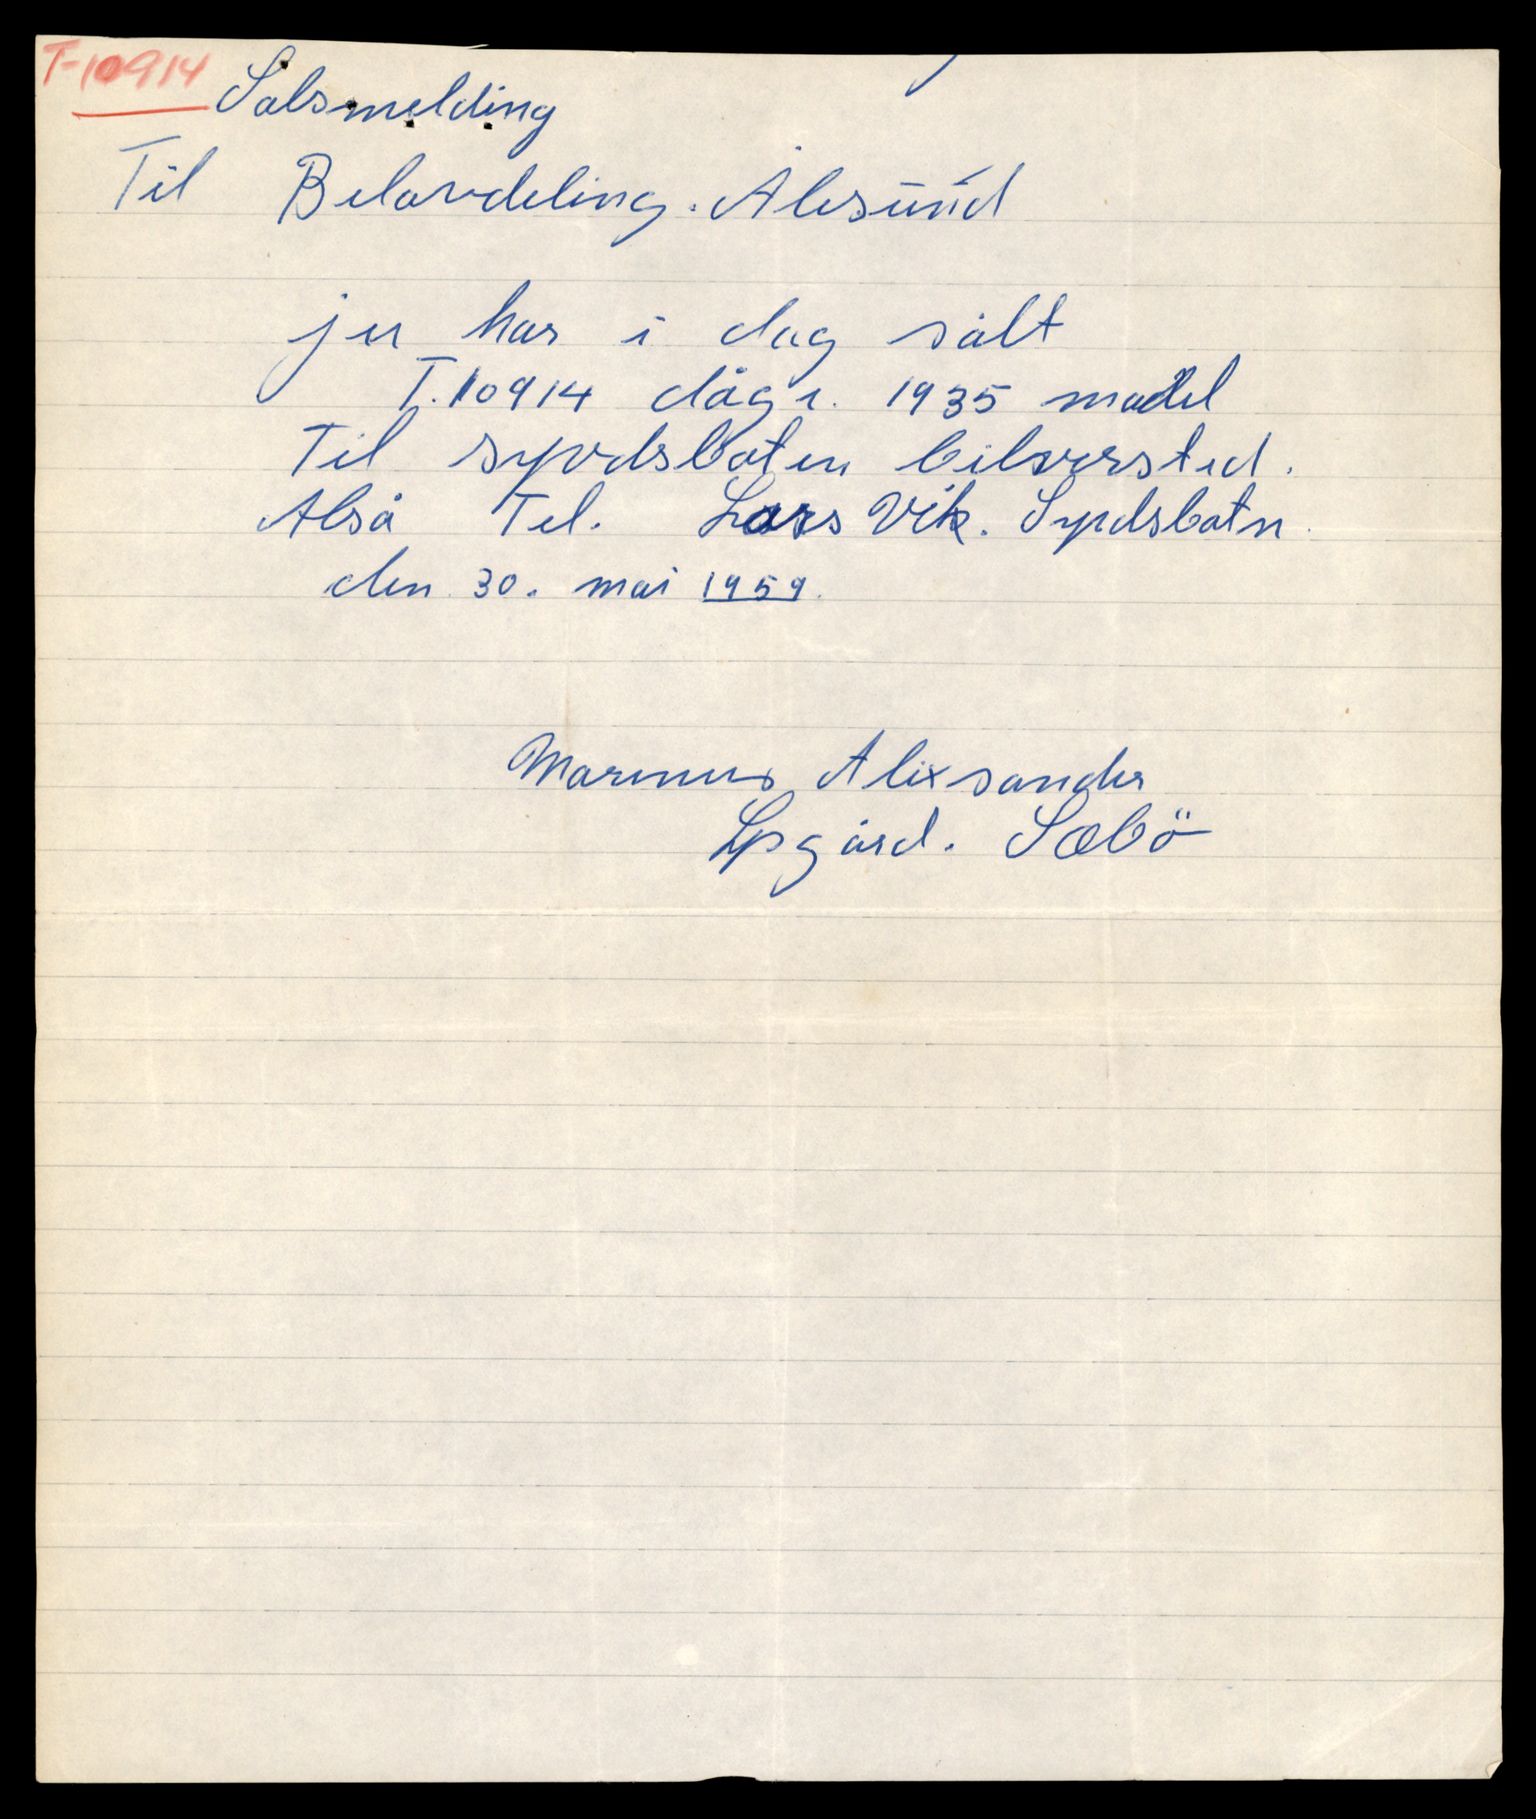 T-10914
Salsmelding
Til Belavdeling. Ålesund
jei har i dag sålt
T.10914 dåge. 1935 model
Til syvdsboten bilversted.
Alså Tel. Lars Vik. Syvdsbotn
den 30. mai 1959.
Marenus Alixsander
Søbö